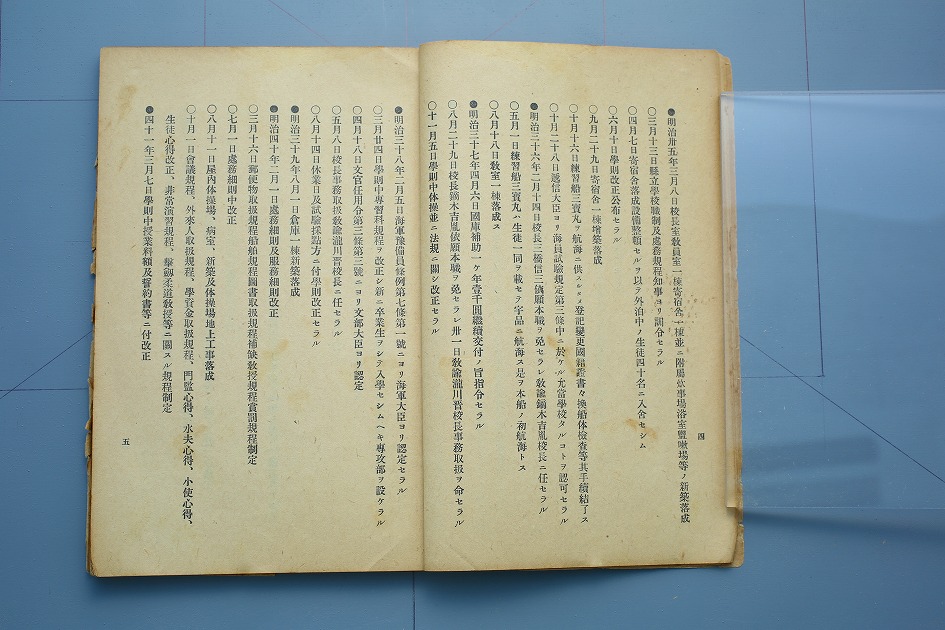 ●明治卅五年三月八日校長室敎員室一棟寄宿舍一棟並ニ附屬炊事場浴室盥嗽場等ノ新築落成
〇三月十三日縣立學校職制及處務規程知事ヨリ訓令セラル
〇四月七日寄宿舍落成設備整頓セルヲ以テ外泊中ノ生徒四十名ニ入舍セシム
〇六月十日學則改正公布セラル
〇九月二十九日寄宿舍一棟增築落成
〇十月十六日練習船三寶丸ヲ航海ニ供スルタメ登記變更國籍證書々換船体檢査等其手續結了ス
〇十月二十八日遞信大臣ヨリ海員試驗規定第三條中ニ於ケル允當學校タルコトヲ認可セラル
●明治三十六年二月十四日校長三橋信三依願本職ヲ免セラレ敎諭鏑木吉胤校長ニ任セラル
〇五月一日練習船三寶丸ハ生徒一同ヲ載セテ宇品ニ航海ス是ヲ本船ノ初航海トス
〇八月十八日敎室一棟落成ス
●明治三十七年四月六日國庫補助一ケ年壹千圓繼續交付ノ旨指令セラル
〇八月二十九日校長鏑木吉胤依願本職ヲ免セラレ卅一日敎諭瀧川晋校長事務取扱ヲ命セラル
〇十一月五日學則中体操並ニ法規ニ關シ改正セラル
四
●明治三十八年二月五日海軍豫備員條例第七條第一號ニヨリ海軍大臣ヨリ認定セラル
〇三月廿四日學則中專習科規程ヲ改正シ新ニ卒業生ヲシテ入學セシムヘキ專攻部ヲ設ケラル
〇四月十八日文官任用令第三條第三號ニヨリ文部大臣ヨリ認定
〇五月八日校長事務取扱敎諭瀧川晋校長ニ任セラル
〇八月十四日休業日及試驗採點方ニ付學則改正セラル
●明治三十九年八月一日倉庫一棟新築落成
●明治四十年二月一日處務細則及服務細則改正
〇三月十六日郵便物取扱規程船舶規程圖書取扱規程補缺敎授規程賞罰規程制定
〇七月一日處務細則中改正
〇八月十一日屋內体操場、病室、新築及体操場地上工事落成
〇十月一日會議規程、外來人取扱規程、學資金取扱規程、門監心得、水夫心得、小使心得、
生徒心得改正、非常演習規程、擊劒柔道敎授等ニ關スル規程制定
●四十一年三月七日學則中授業料額及誓約書等ニ付改正
五